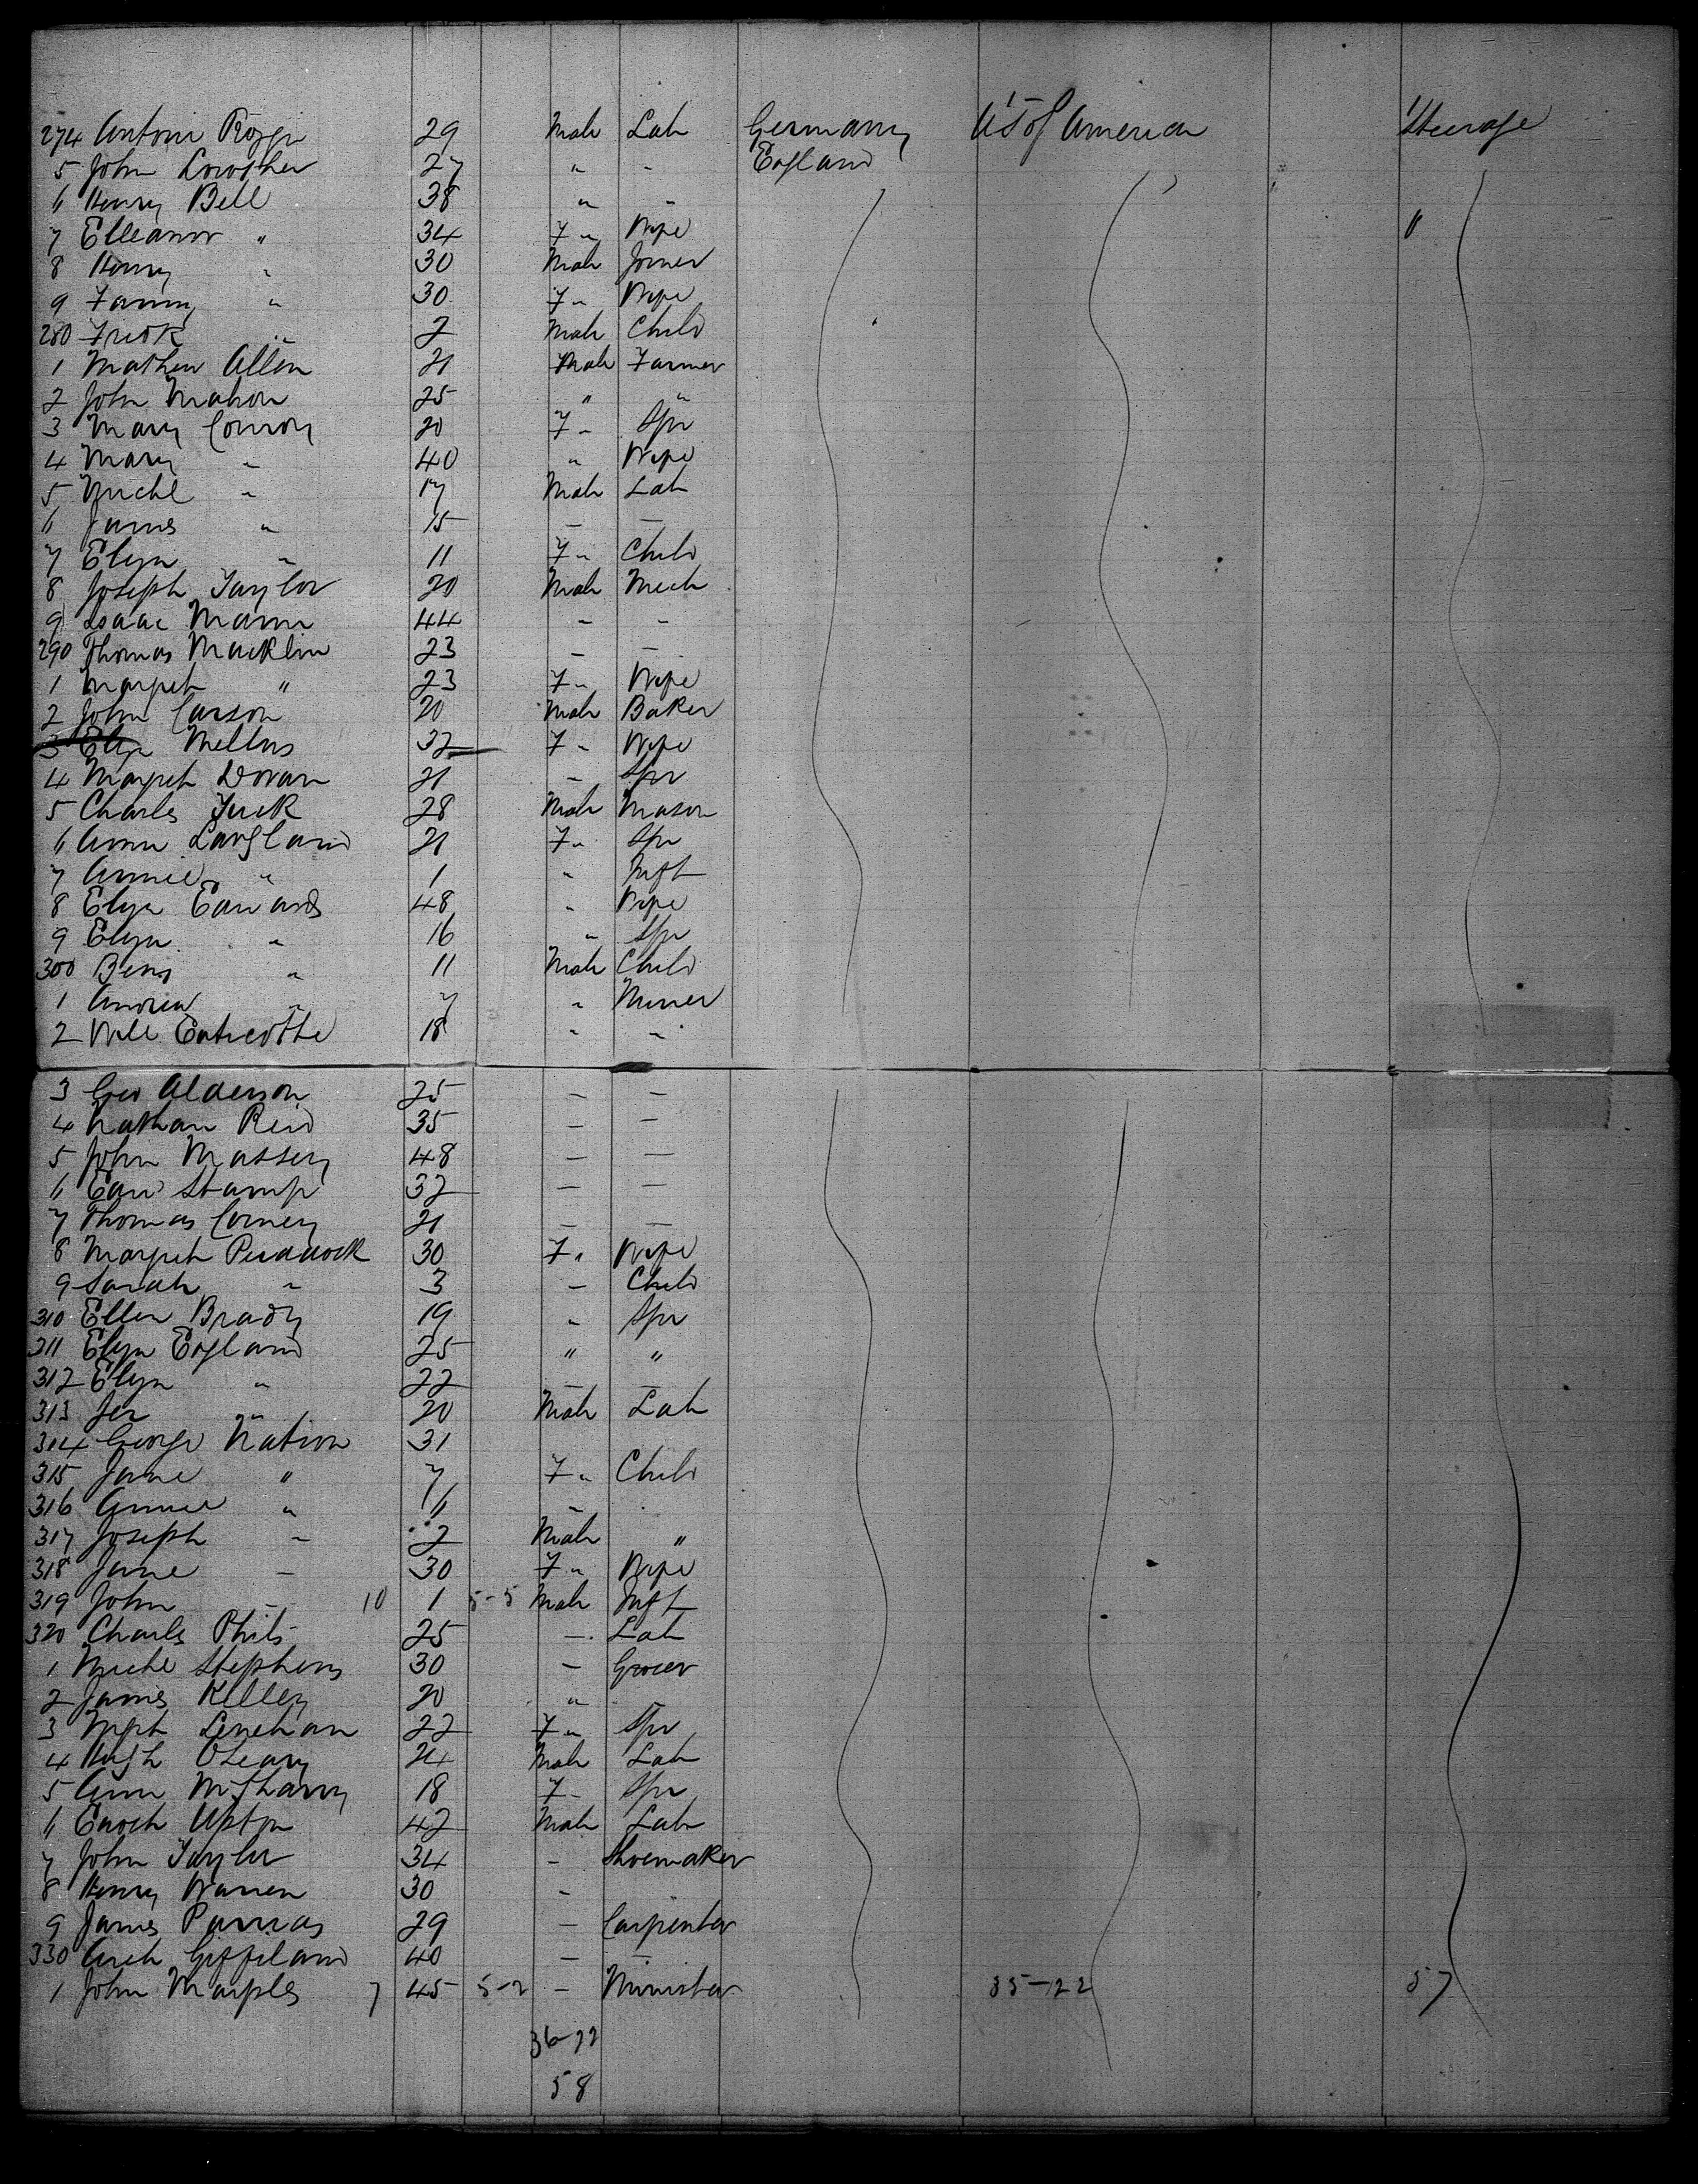 274 Antoni 29 Male Lab Germany U.S of America Steerage
5 John Crowther 27 " - England
6 Henry Bell 38 " "
7 Elleanor " 34 F " Wife "
8 Henry " 30 Male Joiner
9 Fanny " 30 F " Wife
280 Fredk " 2 Male Child
1 Mathew Allen 21 Male Farmer
2 John Mahon 25 " "
3 Mary Conroy 20 F " Spr
4 Mary " 40 " Wife
5 Michl " 17 Male Lab
6 James " 15 - -
7 Eliza " 11 F " Child
8 Joseph Taylor 20 Male Mech
9 Isaac Mann 44 - -
290 Thomas Macklin 23 - -
1 Margret " 23 F " Wife
2 John Carson 20 Male Baker
3 Eliza 32 F " Wife
4 Margret Doran 21 - Spr
5 Charles Tuck 28 Male Mason
6 Ann Langland 21 F " Spr
7 Annie " 1 " Inft
8 Eliza Edwards 48 " Wife
9 Eliza " 16 " Spr
300 Benj " 11 Male Child
1 Andrew " 7 " Miner
2 Will 18 " "
3 Geo Alderson 25 - -
4 Nathan Reid 35 - -
5 John Massey 48 - -
6 Edwd Stamp 32 - -
7 Thomas Corney 21 - -
8 Margret 30 F " Wife
9 Sarah " 3 - Child
310 Ellen Brady 19 " Spr
311 Eliza England 25 " "
312 Eliza " 22 - -
313 Jer " 20 Male Lab
314 George Nation 31
315 Jane " 7 F " Child
316 Annie " 6 -
317 Joseph " 2 Male "
318 Jane - 30 F " Wife
319 John - 10 1 5-5 Male Inft
320 Charles 25 - Lab
1 Michl Stephens 30 - Grocer
2 James Kelley 20 " -
3 Mgrt Lenehan 22 F " Spr
4 Hugh OLeary 24 Male Lab
5 Ann 18 F - Spr
6 Enoch Upton 42 Male Lab
7 John Taylor 34 - Shoemaker
8 Henry Warren 30 -
9 James 29 - Carpenter
330 Arch 40 - -
1 John Marples 7 45 5-2 - Minister 35-22 57
36-22
58